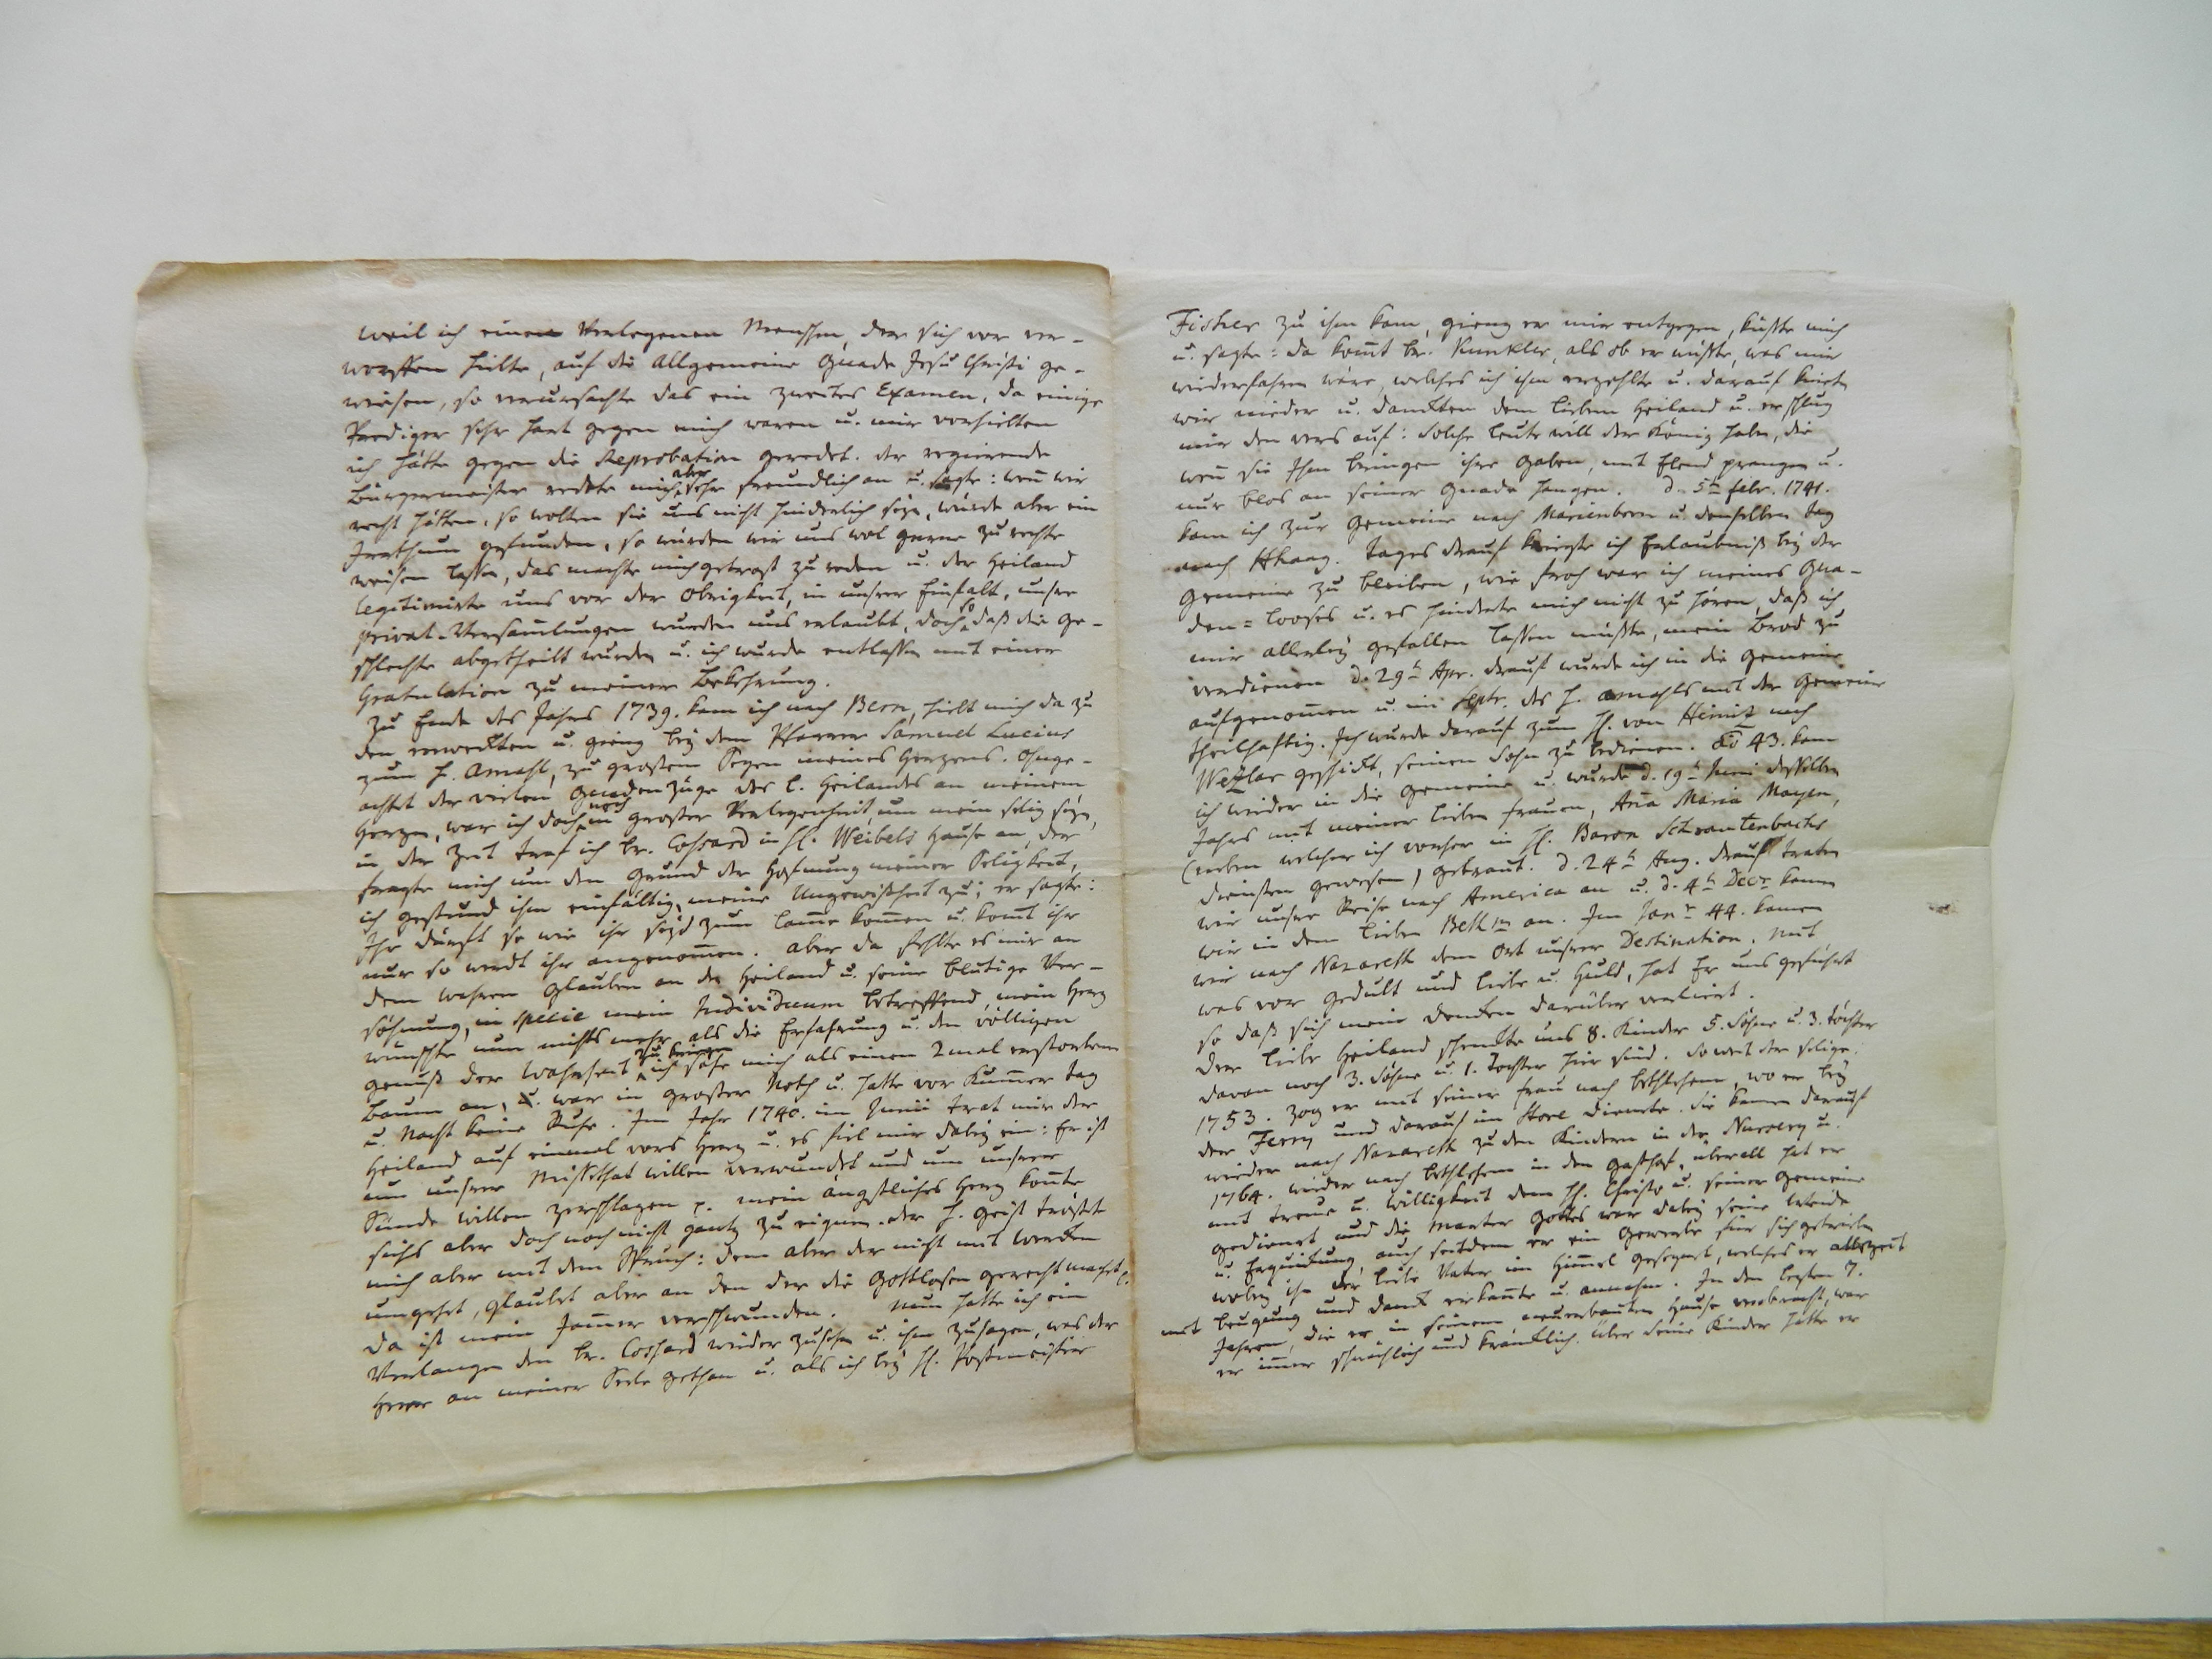 weil ich einen Verlegenen Menschen, der sich vor ver-
worffen hielte, auf die Allgemeine Gnade Jesu Christi ge-
wiesen, so verursachte das ein zweites Examen, da einige
Prediger sehr hart gegen mich waren u. mir vorhielten
ich hätte gegen die Reprobation geredet. der regierende
Bürgermeister redete mich aber sehr freundlich an u. sagte: weñ wir
recht hätten, so wolten sie uns nicht hinderlich seyn, würde aber ein
Irrthum gefunden, so würden wir uns wol gerne zu rechte
weisen lassen, das machte mich getrost zu reden u. der Heiland
legitimirte uns vor der Obrigkeit, in unsrer Einfalt, unsre
privat-Versam̃lungen wurden uns erlaubt, doch so daß die Ge-
schlechte abgetheilt wurden u. ich wurde entlassen mit einer
Gratulation zu meiner Bekehrung.
Zu Ende des Jahres 1739. kam ich nach Bern, hielt mich da zu
den erweckten u. gieng bey dem Pfarrer Samuel Lucius
zum H. Amahl, zu großem Segen meines Herzens. Ohnge-
achtet der vielen Gnadenzüge des l. Heilandes an meinem
Herzen, war ich doch noch in großer Verlegenheit, um mein selig seyn,
in der Zeit traf ich br. Cossard in H. Weibels Hause an, der
fragte mich um den Grund der Hoffnung meiner Seligkeit,
ich gestund ihm einfältig, meine Ungewißheit zu; er sagte:
Ihr dürft so wie ihr seyd zum Lam̃e kom̃en u. kom̃t ihr
nur so werdt ihr angenom̃en. aber da fehlte es mir an
dem wahren Glauben an den Heiland u. seine blutige Ver-
söhnung, in specie mein Individuum betreffend, mein Herz
wünschte nun nichts mehr als die Erfahrung u. den völligen
genuß der Wahrheit zu kriegen ich sahe mich als einen 2mal erstorbenen
Baum an, u. war in großer Noth u. hatte vor Kum̃er tag
u. Nacht keine Ruhe. Im Jahr 1740. im Junii trat mir der
Heiland auf einmal vors Herz u. es fiel mir dabey ein: Er ist
um unsrer Missethat willen verwundet und um unsrer
Sünde willen zerschlagen p. mein ängstliches Herz konte
sichs aber doch noch nicht gantz zu eignen. der H. Geist tröstet
mich aber mit dem Spruch: dem aber der nicht mit Wercken
umgehet, glaubet aber an den der die Gottlosen gerecht macht p.
da ist mein Jam̃er verschwunden. Nun hatte ich ein
Verlangen den br. Cossard wieder zu sehen u. ihm zu sagen, was der
Herr an meiner Seele gethan u. als ich bey H. Postmeister
Fischer zu ihm kam, gieng er mir entgegen, küßte mich
u. sagte: da kom̃t br. Kunkler, als ob er wüßte, was mir
wiederfahren wäre, welches ich ihm erzehlte u. darauf knieten
wir nieder u. danckten dem lieben Heiland u. er schlug
mir den vers auf: Solche Leute will der König haben, die
weñ sie Ihm bringen ihre Gaben, mit Elend prangen u.
nur blos an seiner Gnade hangen. d. 5ten febr. 1741.
kam ich zur Gemeine nach Marienborn u. denselben tag
nach Hhaag. tages drauf kriegte ich Erlaubniß bey der
Gemeine zu bleiben, wie froh war ich meines Gna-
den-Looses u. es hinderte mich nicht zu hören, daß ich
mir allerley gefallen lassen müßte, mein Brod zu
verdienen d. 29th Apr. drauf wurde ich in die Gemeine
aufgenom̃en u. im Septr. des H. Amahls mit der Gemeine
theilhaftig. Ich wurde darauf zum H. von Heinitz nach
Wetzlar geschickt, seinen Sohn zu bedienen. 43. kam
ich wieder in die Gemeine u. wurde d. 19th Junii desselben
Jahrs mit meiner lieben frauen, Aña Maria Mayin,
(neben welcher ich vorher in H. Baron Schrautenbachs
diensten gewesen) getraut. d. 24th Aug. drauf traten
wir unsre Reise nach America an u. d. 4th Decr kamen
wir in dem lieben Bethm an. Im Janr 44. kamen
wir nach Nazareth dem Ort unsrer Destination. mit
was vor Gedult und liebe u. Huld, hat Er uns geführt
so daß sich mein dencken darüber verliert.
der liebe Heiland schenkte uns 8. Kinder 5. Söhne u. 3. töchter
davon noch 3. Söhne u. 1. tochter hier sind. So weit der selige.
1753. zog er mit seiner frau nach bethlehem, wo er bey
der Ferry und darauf im Store diente. Sie kamen darauf
wieder nach Nazareth zu den Kindern in der Nursery u.
1764. wieder nach bethlehem in den Gasthof, überall hat er
mit treue u. willigkeit dem H. Christo u. seiner Gemeine
gedienet und die Marter Gottes war dabey seine Weide
u. Erquickung, auch seitdem er ein Gewerbe für sich getrieben
wobey ihn der liebe Vater im Him̃el gesegnet, welches er allezeit
mit beugung und danck erkannte u. annahm. In den lezten 7.
Jahren, die er in seinem neuerbauten Hause verbracht, war
er im̃er schwächlich und kräncklich. über seine Kinder hatte er